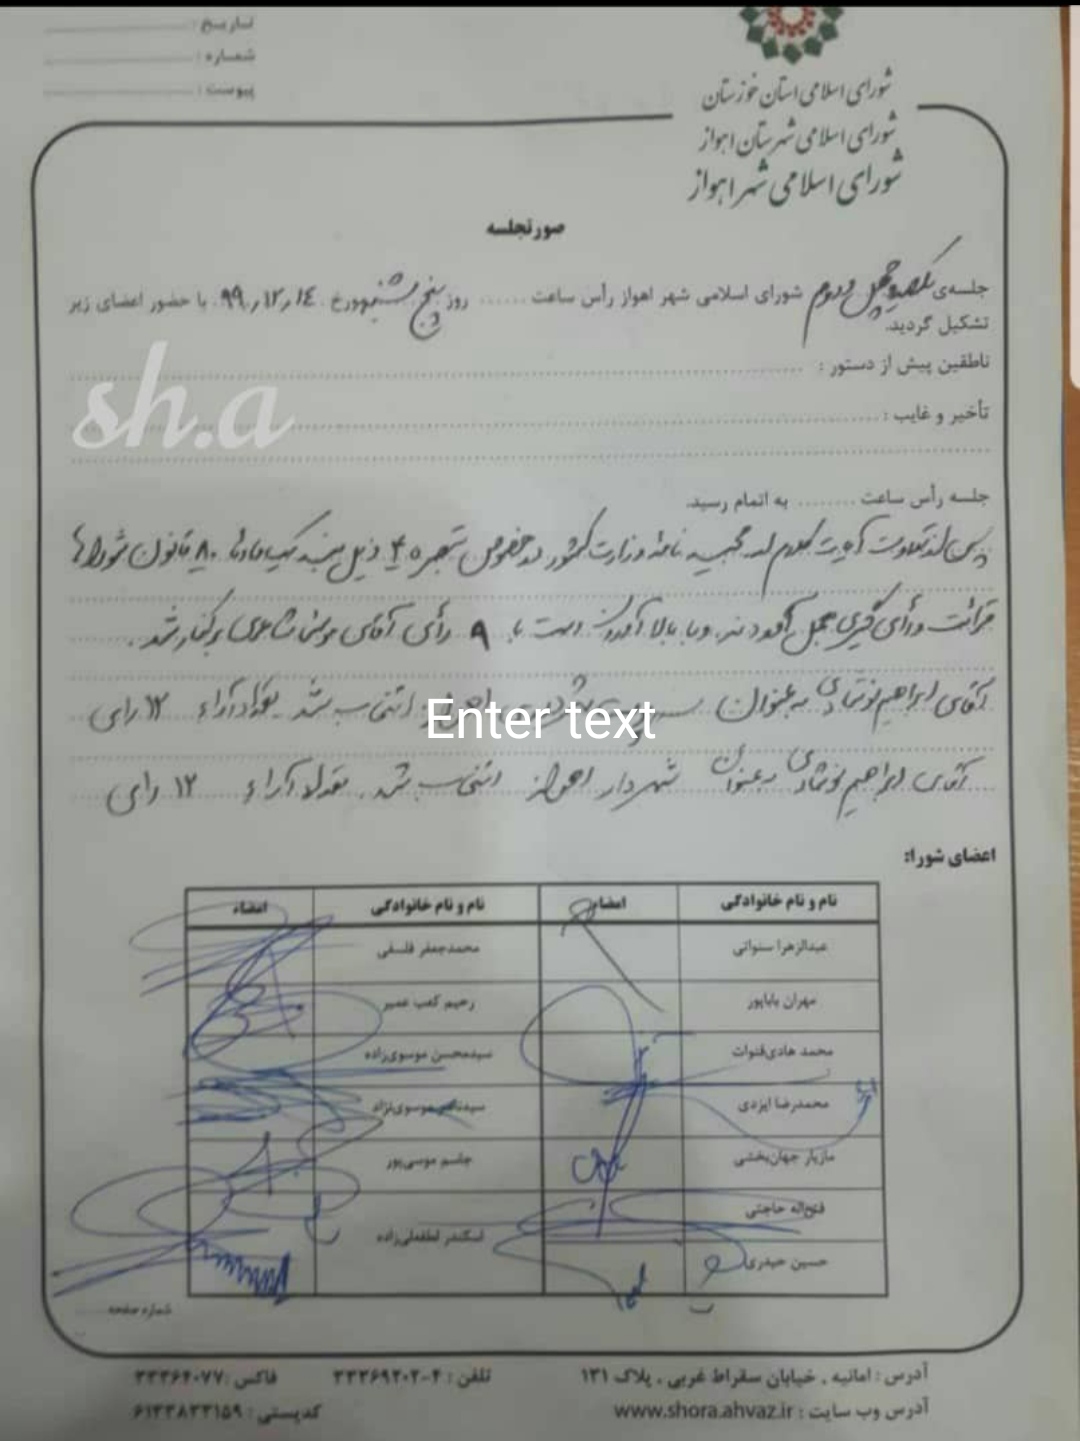 تاریخ :
شماره :
پیوست :
شورای اسلامی استان خوزستان
شورای اسلامی شهرستان اهواز
شورای اسلامی شهر اهواز
صورتجلسه
جلسه‌ی یکصد و چهل و دوم شورای اسلامی شهر اهواز رأس ساعت ...... روز پنج شنبه مورخ ۹۹٫۱۲٫۱۴ با حضور اعضای زیر
تشکیل گردید.
ناطقین پیش از دستور :
تأخیر و غایب :
sh.a
جلسه رأس ساعت ........ به اتمام رسید.
پس از تلاوت آیات کلام الله مجید نامه وزارت کشور در خصوص تبصره ۴ ذیل بند یک ماده ۸۰ قانون شوراها
قرائت و رأی گیری بعمل آمد و با بالا آوردن دست با ۹ رأی آقای موسی شاعری برکنار شد.
آقای ابراهیم نوشادی به عنوان سرپرست اهواز انتخاب شد تعداد آراء ۱۲ رای
Enter text
آقای ابراهیم نوشادی به عنوان شهردار اهواز انتخاب شد. تعداد آراء ۱۲ رای
اعضای شورا:
نام و نام خانوادگی امضاء نام و نام خانوادگی امضاء
عبدالزهرا سنواتی محمدجعفر فلسفی
مهران باباپور رحیم کعب عمیر
محمد هادی‌قنوات سیدمحسن موسوی‌زاده
محمدرضا ایزدی سیدناصر موسوی‌نژاد
مازیار جهان‌بخشی جاسم موسی‌پور
فتح‌اله حاجتی اسکندر لطفعلی‌زاده
حسین حیدری
شماره صفحه
آدرس : امانیه ، خیابان سقراط غربی ، پلاک ۱۳۱ تلفن : ۴-۳۳۳۶۹۲۰۲ فاکس : ۳۳۳۶۴۰۷۷
آدرس وب سایت : www.shora.ahvaz.ir کدپستی : ۶۱۳۳۸۳۳۱۵۹